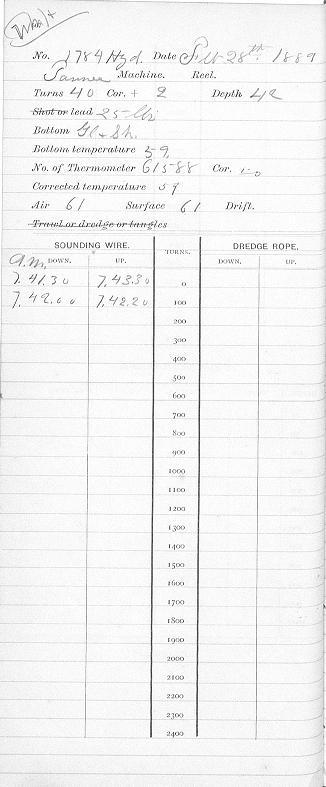 No. 1784 Hyd. Date Feb 28th 1889
Tanner Machine. Reel.
Turns 40 Cor. + 2 Depth 42
Shot or lead 25 lbs
Bottom Gl. & Sh.
Bottom temperature 59
No. of Thermometer 61588 Cor.
Corrected temperature 59
Air 61 Surface 61 Drift.
Trawl or dredge or tangles
SOUNDING WIRE. TURNS. DREDGE ROPE.
a.m. DOWN. UP. DOWN. UP.
7.41.30 7.43.30 0
7.42.00 7.42.20 100
200
300
400
500
600
700
800
900
1000
1100
1200
1300
1400
1500
1600
1700
1800
1900
2000
2100
2200
2300
2400